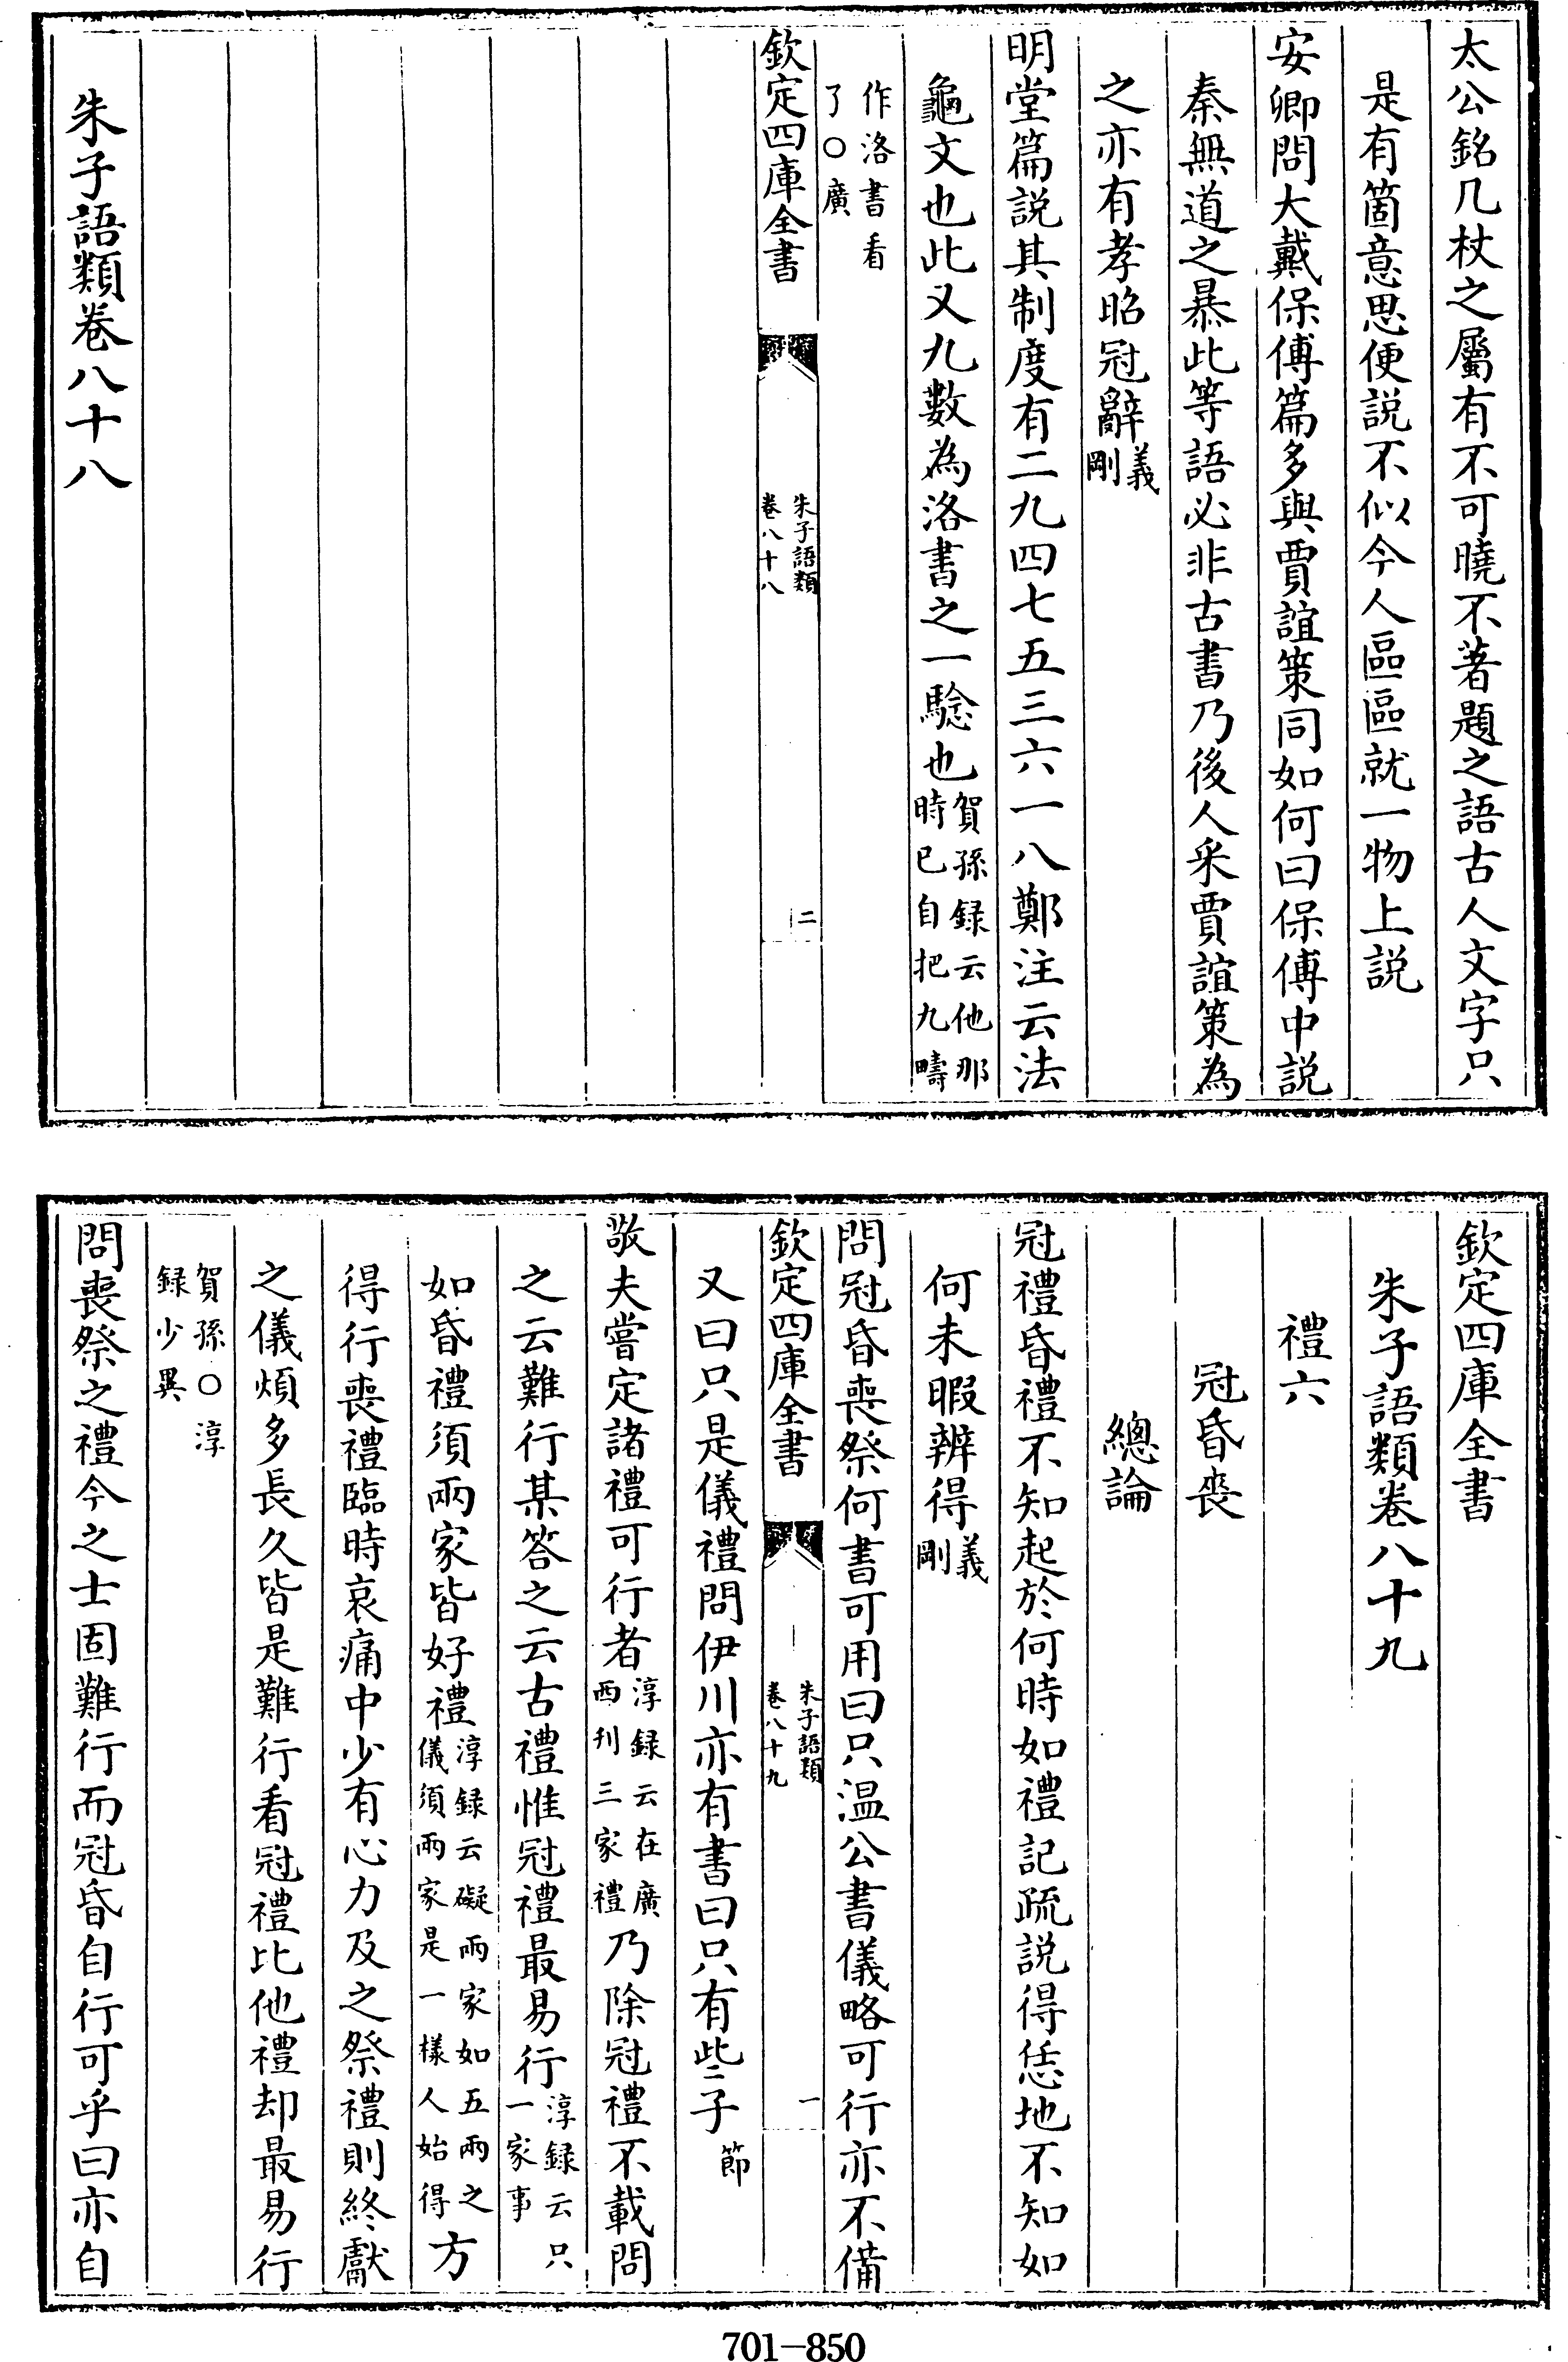 太公銘几杖之屬有不可曉不著題之語古人文字只
是有箇意思便説不似今人區區就一物上説
安卿問大戴保傅篇多與賈誼策同如何曰保傅中説
秦無道之暴此等語必非古書乃後人采賈誼策為
之亦有孝昭冠辭義剛
明堂篇説其制度有二九四七五三六一八鄭注云法
龜文也此又九數為洛書之一騐也賀孫録云他那時已自把九疇
作洛書看了○廣
欽定四庫全書
朱子語類
卷八十八
二
朱子語類卷八十八
欽定四庫全書
朱子語類卷八十九
禮六
冠昏喪
總論
冠禮昏禮不知起於何時如禮記疏説得恁地不知如
何未暇辨得義剛
問冠昏喪祭何書可用曰只温公書儀略可行亦不備
欽定四庫全書
朱子語類
卷八十九
一
又曰只是儀禮問伊川亦有書曰只有些子節
敬夫嘗定諸禮可行者淳録云在廣西刋三家禮乃除冠禮不載問
之云難行某答之云古禮惟冠禮最易行淳録云只一家事
如昏禮須兩家皆好禮淳録云礙兩家如五兩之儀須兩家是一樣人始得方
得行喪禮臨時哀痛中少有心力及之祭禮則終獻
之儀煩多長久皆是難行看冠禮比他禮却最易行
賀孫○淳録少異
問喪祭之禮今之士固難行而冠昏自行可乎曰亦自
701-850